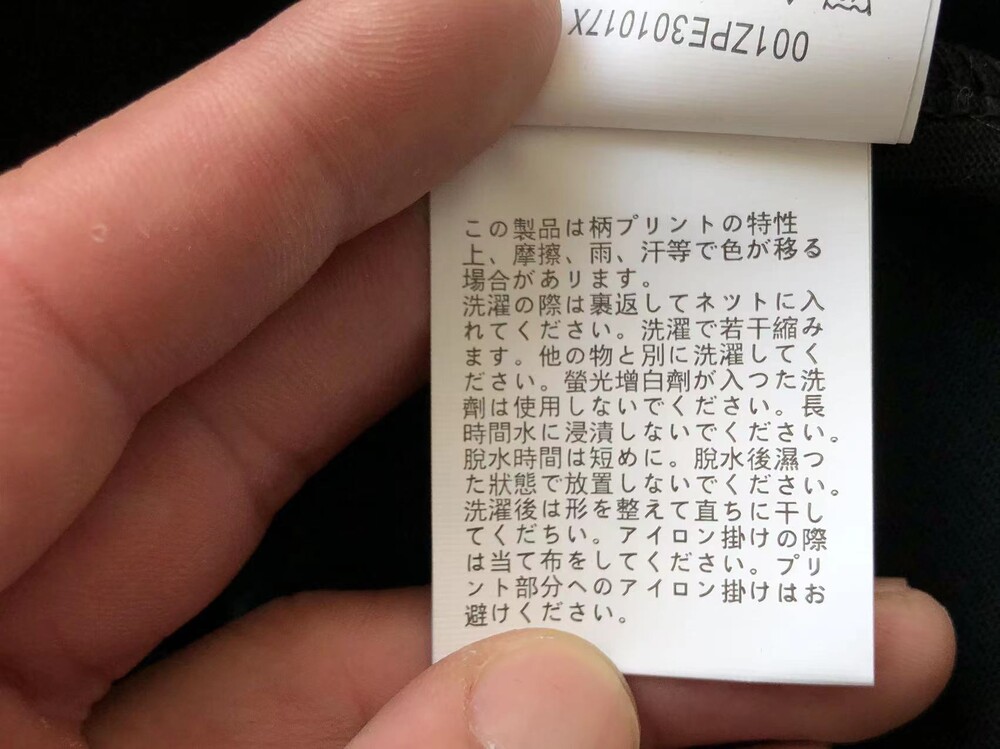 001ZPE301017X
この製品は柄プリントの特性
上、摩擦、雨、汗等で色が移る
場合があリます。
洗濯の際は裏返してネツトに入
れてください。洗濯で若干縮み
ます。他の物と別に洗濯してく
ださい。螢光增白劑が入つた洗
劑は使用しないでください。長
時間水に浸漬しないでください。
脫水時間は短めに。脫水後濕つ
た狀態で放置しないでください。
洗濯後は形を整えて直ちに干し
てくだちい。アイロン掛けの際
は当て布をしてください。プリ
ント部分へのアイロン掛けはお
避けください。